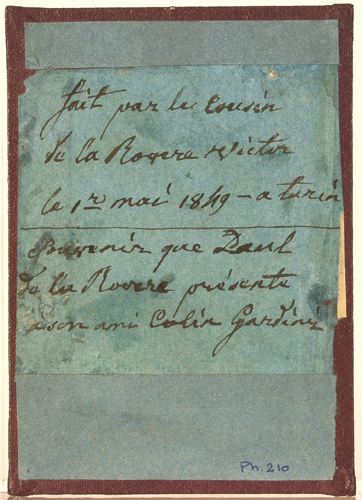 fait par le Cousin
de la Rovere Victor
le 1er mai 1849 - a turin
Souvenir que Paul
de la Rovere présente
a son ami Colin Gardiner
Ph. 210